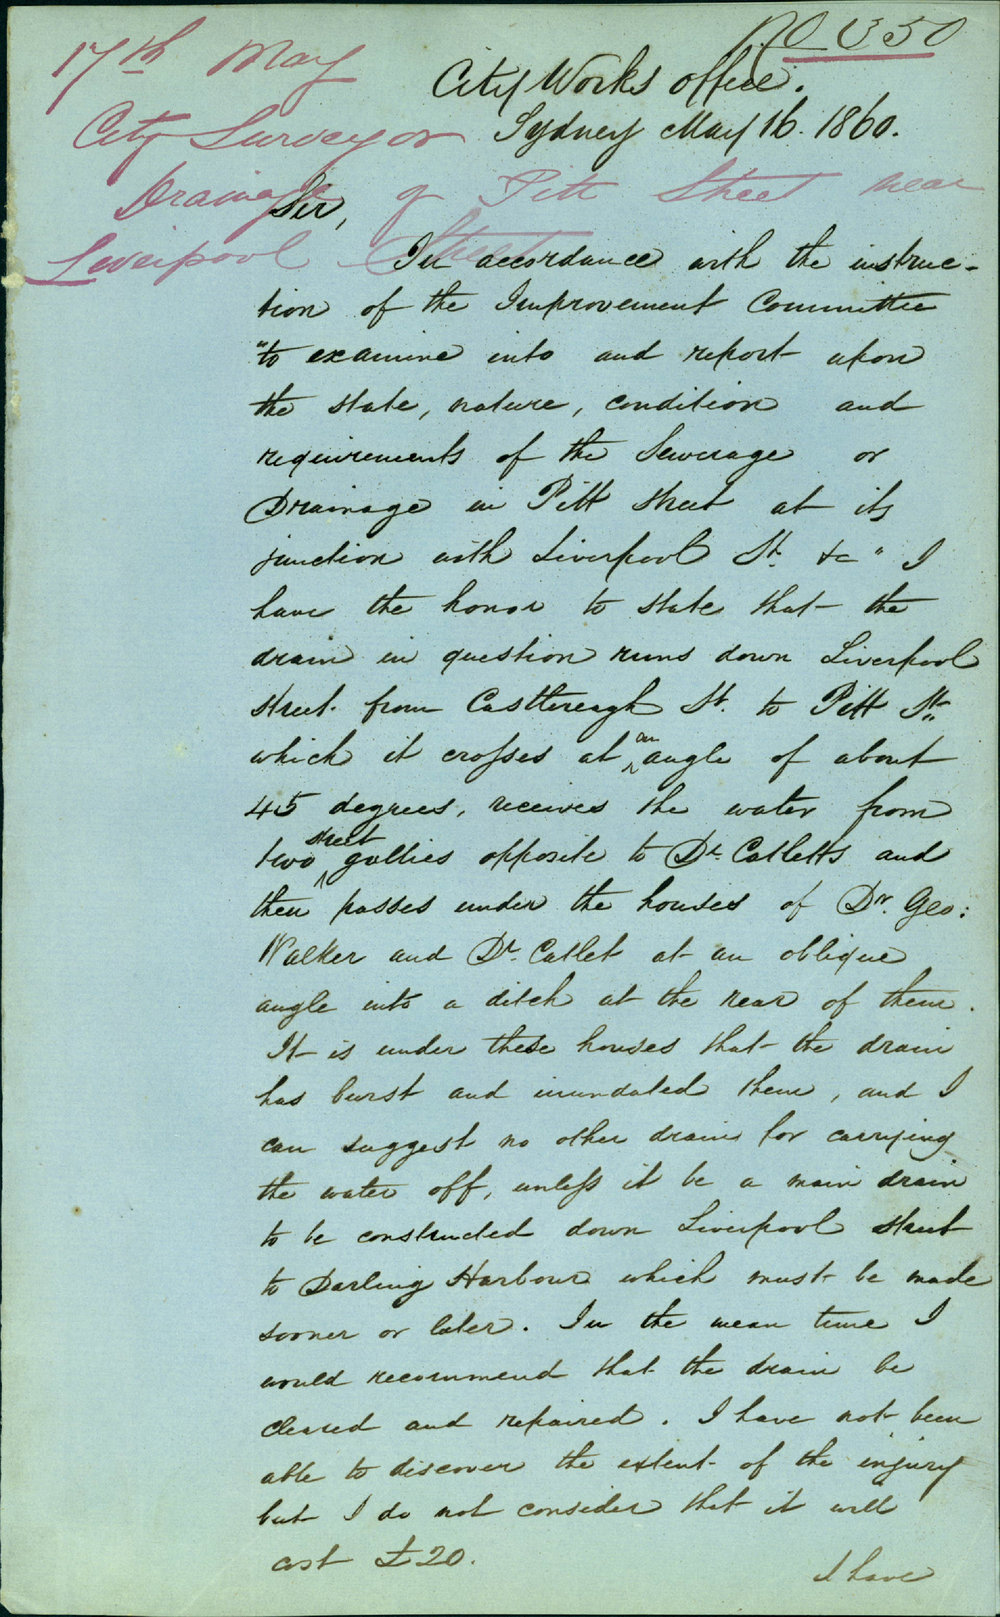 No 350
17th May
City Works office.
City Surveyor
Sydney May 16. 1860.
Drainage of Pitt Street near
Sir,
Liverpool Street
In accordance with the instruc-
tion of the Improvement Committee
"to examine into and report upon
the state, nature, condition and
requirements of the Sewerage or
Drainage in Pitt Street at its
junction with Liverpool St. &c" I
have the honor to state that the
drain in question runs down Liverpool
street from Castlereagh St. to Pitt St.
which it crosses at an angle of about
45 degrees, receives the water from
two street gullies opposite to Dr. Catletts and
then passes under the houses of Dr. Geo:
Walker and Dr. Catlet at an oblique
angle into a ditch at the rear of them.
It is under these houses that the drain
has burst and inundated them, and I
can suggest no other drain for carrying
the water off, unless it be a main drain
to be constructed down Liverpool street
to Darling Harbour which must be made
sooner or later. In the mean time I
would recommend that the drain be
cleared and repaired. I have not been
able to discover the extent of the injury
but I do not consider that it will
cost £20.
I have